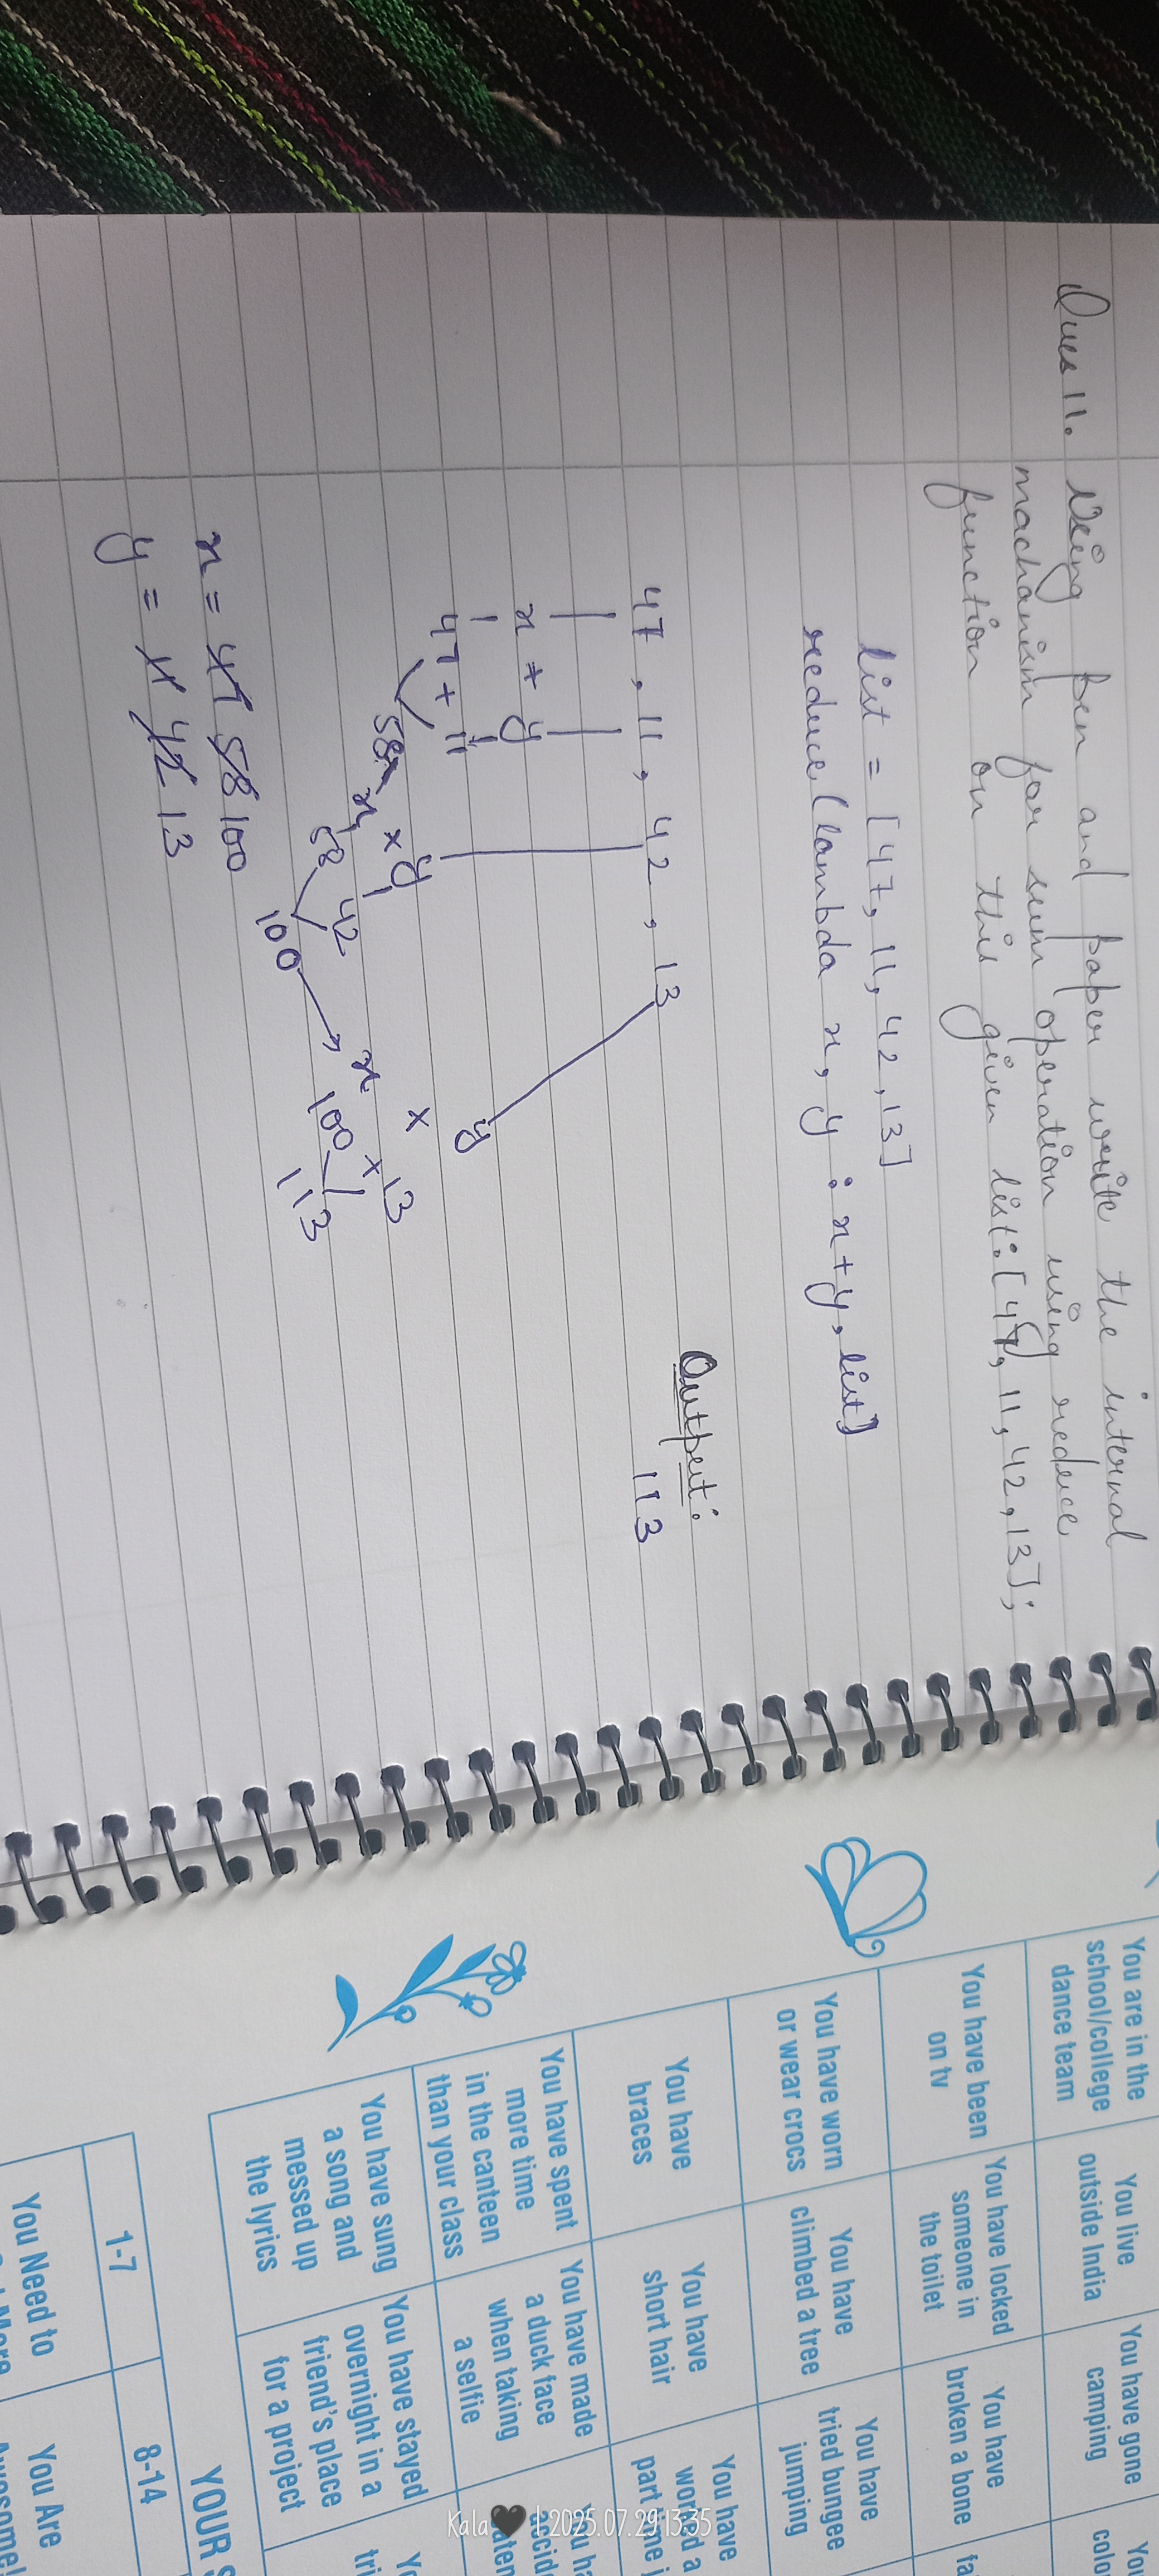 Ques 11. Using pen and paper write the internal
machanism for sum operation using reduce
function on this given list:[47, 11, 42, 13];
list = [47, 11, 42, 13]
reduce (lambda x, y : x+y, list)
Output:
47, 11, 42, 13
113
x + y
y
47 + 11
x + y
58
x + y
58 42
100 + 13
100
113
x = 47 58 100
y = 11 42 13
You are in the
school/college
dance team
You live
outside India
You have gone
camping
You have been
on tv
You have locked
someone in
the toilet
You have
broken a bone
You have worn
or wear crocs
You have
climbed a tree
You have
tried bungee
jumping
You have
braces
You have
short hair
You have
worked a
part time j
You have spent
more time
in the canteen
than your class
You have made
a duck face
when taking
a selfie
You have sung
a song and
messed up
the lyrics
You have stayed
overnight in a
friend's place
for a project
YOUR
1-7
8-14
You Need to
You Are
Kala🖤 | 2025.07.29 13:35